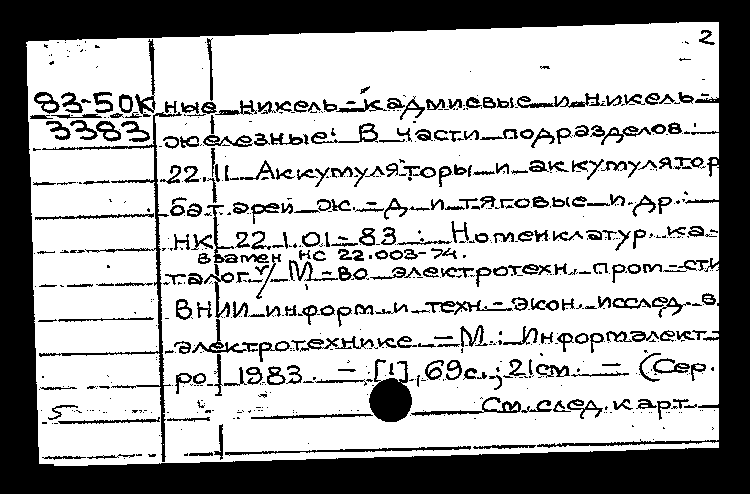 2
83-50К ные никель-кадмиевые и никель-
3383 железные: В части подразделов:
22.11 Аккумуляторы и аккумулятор
батарей ж.-д. и тяговые и др.:
НК 22.1.01-83 : Номенклатур. ка-
взамен НС 22.003-74.
талог / М-во электротехн. пром-сти
ВНИИ информ. и техн.-экон. исслед. в
электротехнике. - М.: Информэлект-
ро, 1983. - [1], 69с.; 21см. - (Сер.
5 См. след. карт.